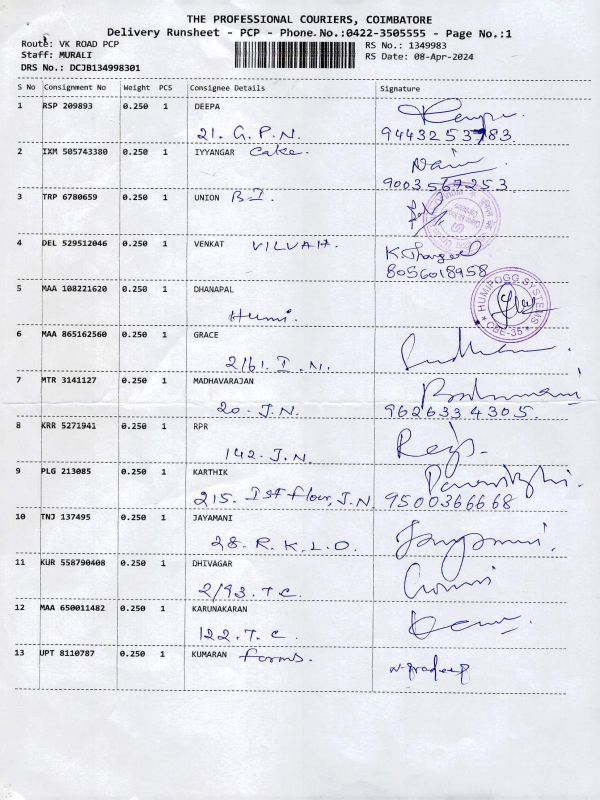 THE PROFESSIONAL COURIERS, COIMBATORE
Delivery Runsheet - PCP - Phone No.:0422-3505555 - Page No.:1
Route: VK ROAD PCP RS No.: 1349983
Staff: MURALI RS Date: 08-Apr-2024
DRS No.: DCJB134998301
S No Consignment No Weight PCS Consignee Details Signature
1 RSP 209893 0.250 1 DEEPA
21. G.P.N. 9443253783
2 IXM 505743380 0.250 1 IYYANGAR Cake.
9003567253
3 TRP 6780659 0.250 1 UNION B.I.
4 DEL 529512046 0.250 1 VENKAT VILVAH.
8056018958
5 MAA 108221620 0.250 1 DHANAPAL
HUMIFOGG SYSTEMS
CBE-35
Humi.
6 MAA 865162560 0.250 1 GRACE
2/61. I.N.
7 MTR 3141127 0.250 1 MADHAVARAJAN
20. J.N. 9626334305.
8 KRR 5271941 0.250 1 RPR
142. J.N.
9 PLG 213085 0.250 1 KARTHIK
215. Ist floor, J.N 9500366668
10 TNJ 137495 0.250 1 JAYAMANI
28. R.K.L.O.
11 KUR 558790408 0.250 1 DHIVAGAR
2/93. T.C.
12 MAA 650011482 0.250 1 KARUNAKARAN
122. T. C.
13 UPT 8110787 0.250 1 KUMARAN forms.
N. Pradeep